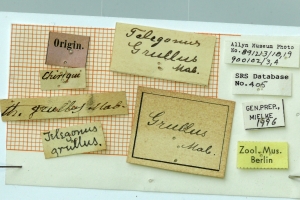 Origin.
Chiriqui
Th. grullus Mab.
Telegonus
grullus.
Telegonus
Grullus
Mab.
Grullus
Mab.
Allyn Museum Photo
No. 891213/18,19
900102/3,4
SRS Database
No. 405
GEN. PREP.,
MIELKE
1996
Zool. Mus.
Berlin